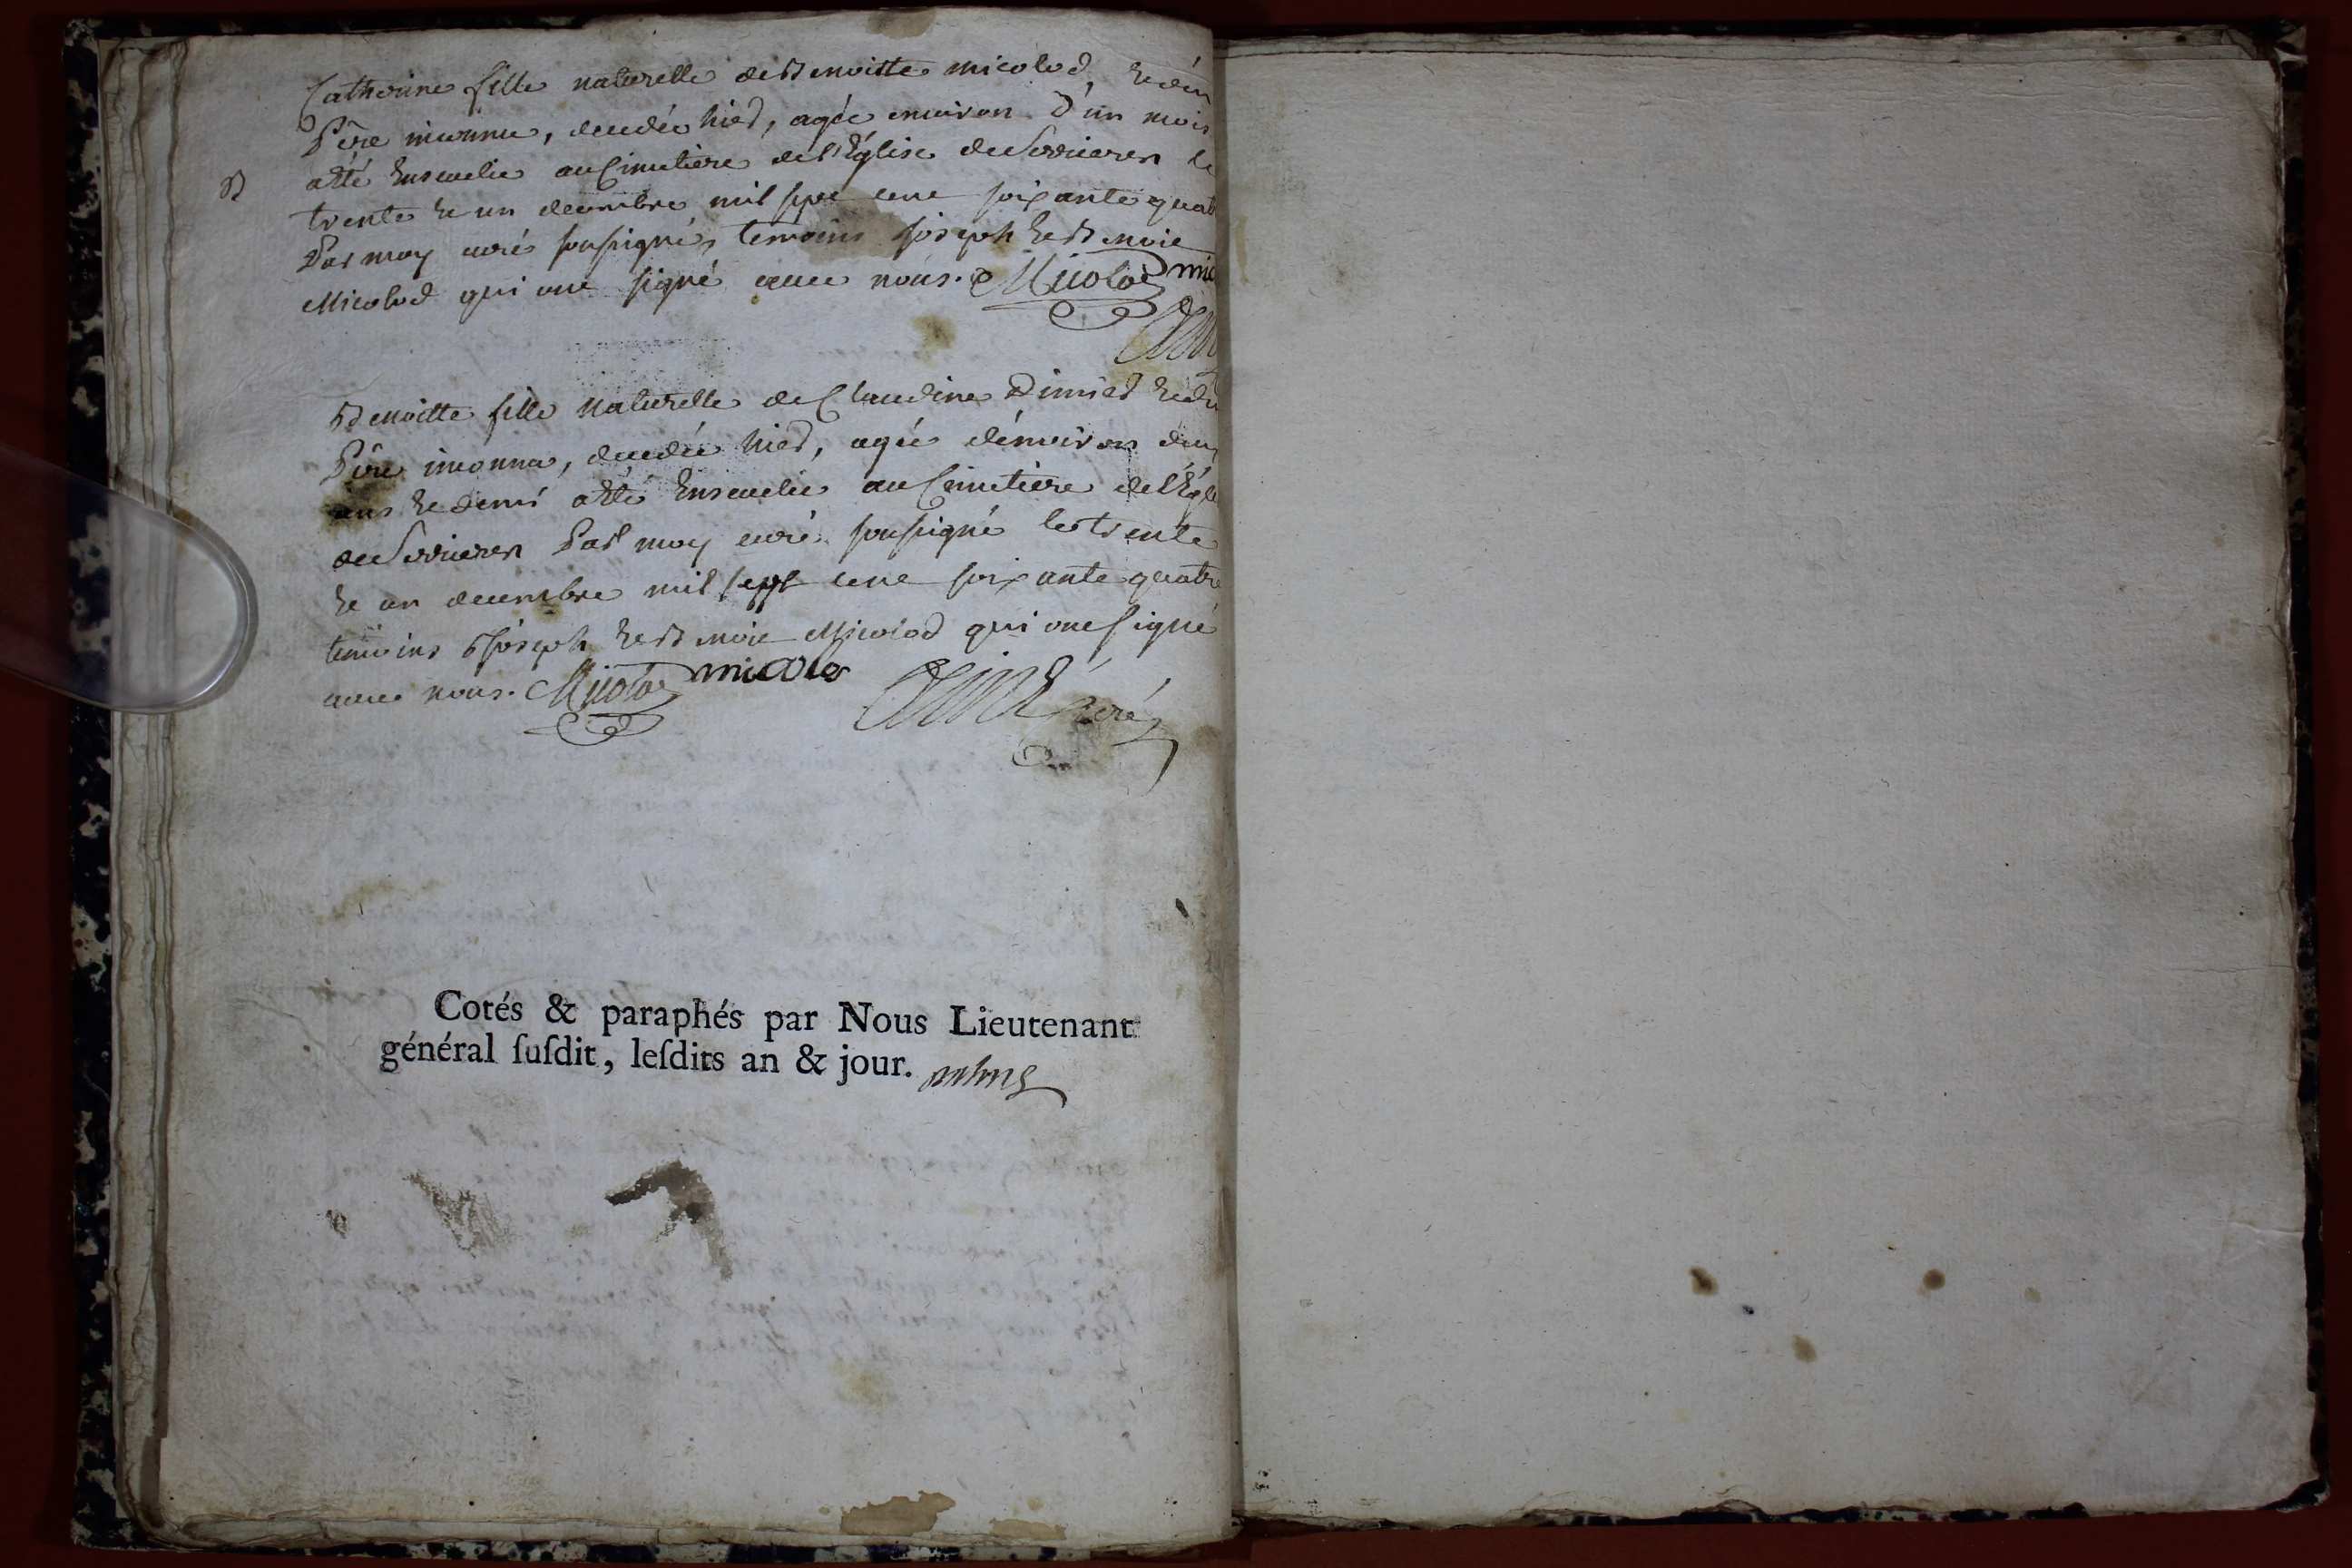 Catherine fille naturelle de Benoitte micolod, et d'un
Père inconnu, decedée hier, agée environ d'un mois
a été Ensevelie au Cimetière de l'Église de Serrieres le
B
trente et un decembre mil sept cent soixante quat
Par moy curé soussigné, temoins Joseph et Benoit
Micolod qui ont signé avec nous. Micolod mic
Benoitte fille Naturelle de Claudine Dimier et d'u
Père inconnu, decedée hier, agée d'environ deux
ans et demi a été Ensevelie au Cimetière de l'Égl
de Serrieres Par moy curé soussigné le trente
et un decembre mil sept cent soixante quatre
temoins Joseph et Benoit Micolod qui ont signé
avec nous. Micolod micolo
curé
Cotés & paraphés par Nous Lieutenant
général ſuſdit, leſdits an & jour.